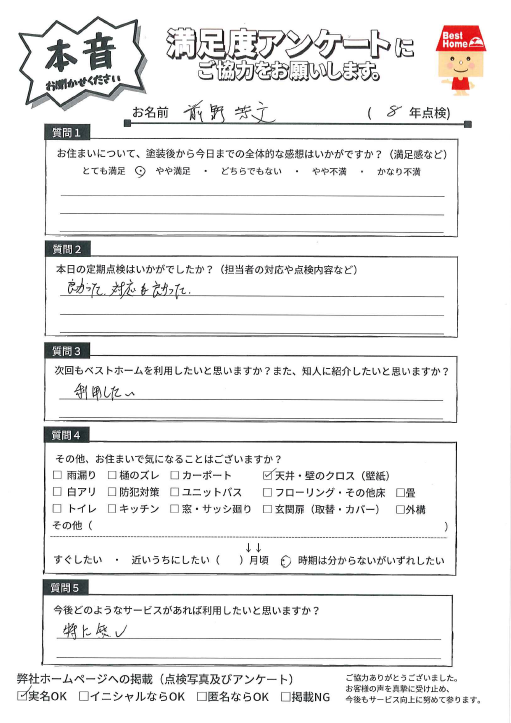 本音
お聞かせください
満足度アンケートに
ご協力をお願いします。
Best Home
お名前 前野 恭文 ( 8 年点検)
質問1
お住まいについて、塗装後から今日までの全体的な感想はいかがですか？（満足感など）
とても満足 ・ やや満足 ・ どちらでもない ・ やや不満 ・ かなり不満
質問2
本日の定期点検はいかがでしたか？（担当者の対応や点検内容など）
良かった。対応も良かった。
質問3
次回もベストホームを利用したいと思いますか？また、知人に紹介したいと思いますか？
利用したい
質問4
その他、お住まいで気になることはございますか？
□ 雨漏り □ 樋のズレ □ カーポート ☑ 天井・壁のクロス（壁紙）
□ 白アリ □ 防犯対策 □ ユニットバス □ フローリング・その他床 □畳
□ トイレ □ キッチン □ 窓・サッシ廻り □ 玄関扉（取替・カバー） □外構
その他（ ）
↓↓
すぐしたい ・ 近いうちにしたい（ ）月頃 ・ 時期は分からないがいずれしたい
質問5
今後どのようなサービスがあれば利用したいと思いますか？
特に無し
弊社ホームページへの掲載（点検写真及びアンケート）
☑実名OK □イニシャルならOK □匿名ならOK □掲載NG
ご協力ありがとうございました。
お客様の声を真摯に受け止め、
今後もサービス向上に努めて参ります。